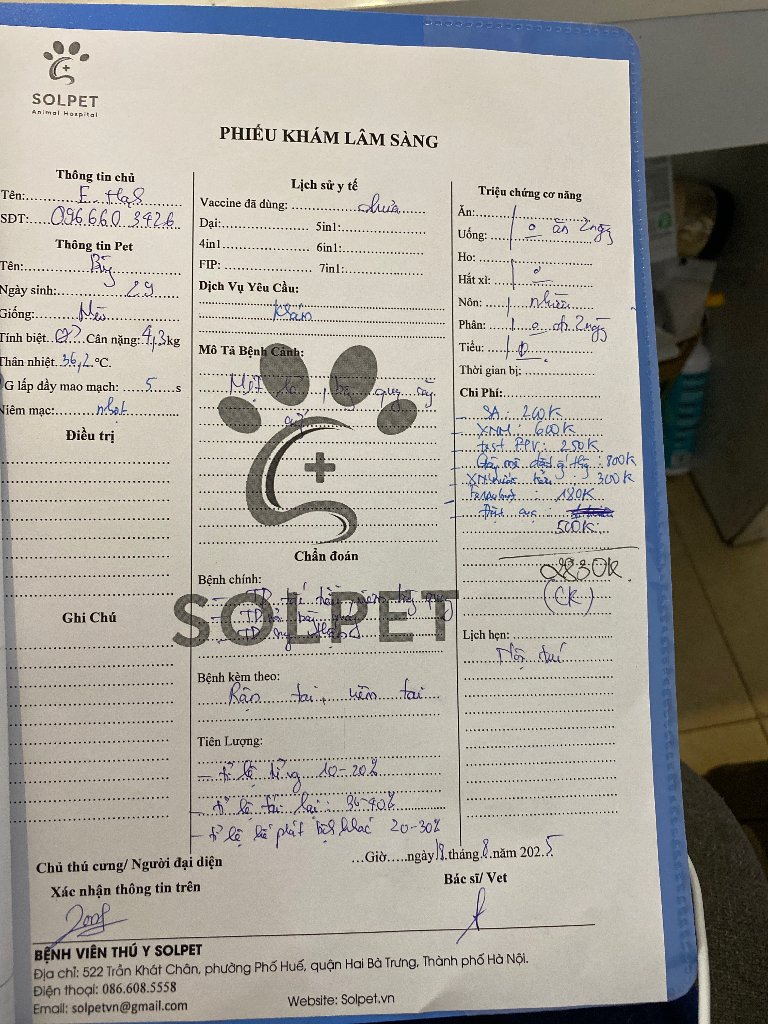 SOLPET
Animal Hospital
PHIẾU KHÁM LÂM SÀNG
Thông tin chủ
Tên:
SĐT: 096.660 3426
Thông tin Pet
Tên:
Ngày sinh: 2y
Giống: Mèo
Tính biệt Cân nặng: 4,3kg
Thân nhiệt 36,2 °C.
G lấp đầy mao mạch: 5 s
Niêm mạc: nhạt
Điều trị
Ghi Chú
Lịch sử y tế
Vaccine đã dùng: chưa
Dại: 5in1:
4in1 6in1:
FIP: 7in1:
Dịch Vụ Yêu Cầu:
Khám
Mô Tả Bệnh Cảnh:
SOLPET
Chẩn đoán
Bệnh chính:
Bệnh kèm theo:
Rận tai, viêm tai
Tiên Lượng:
- tỉ lệ 10-20%
- tỉ lệ tái lại: 36-40%
- tỉ lệ kế phát bệnh khác 20-30%
Triệu chứng cơ năng
Ăn:
Uống: o ăn 2ngày
Ho:
Hắt xì: o
Nôn: nhiều
Phân: o 2ngày
Tiểu:
Thời gian bị:
Chi Phí:
- SA: 200K
- XNM: 600K
- test FPV: 250K
: 800K
- XN nước tiểu: 300K
: 180K
500K
2830K
(CK)
Lịch hẹn:
Nội trú
Chủ thú cưng/ Người đại diện
Xác nhận thông tin trên
...Giờ.....ngày 18 tháng 8 năm 2025
Bác sĩ/ Vet
BỆNH VIỆN THÚ Y SOLPET
Địa chỉ: 522 Trần Khát Chân, phường Phố Huế, quận Hai Bà Trưng, Thành phố Hà Nội.
Điện thoại: 086.608.5558
Email: solpetvn@gmail.com Website: Solpet.vn